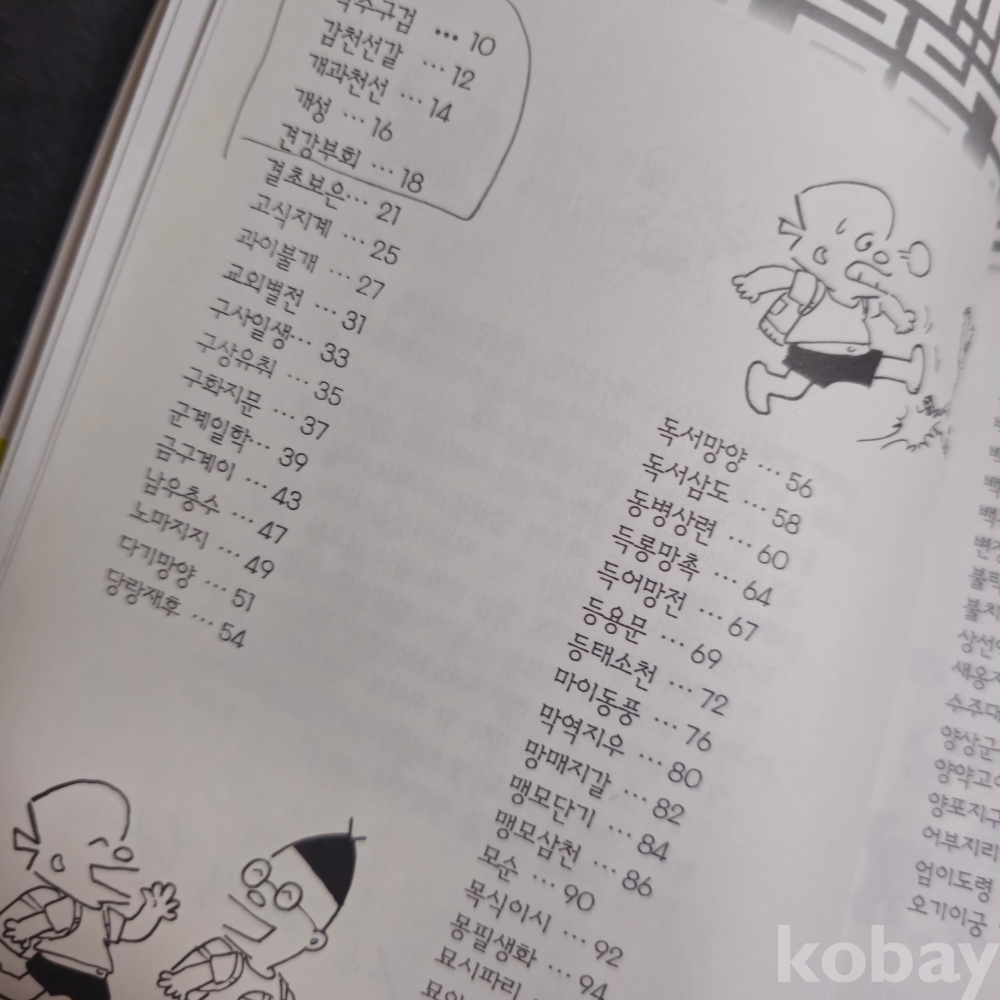 각주구검 … 10
감천선갈 … 12
개과천선 … 14
개성 … 16
견강부회 … 18
결초보은 … 21
고식지계 … 25
과이불개 … 27
교외별전 … 31
구사일생 … 33
구상유취 … 35
구화지문 … 37
군계일학 … 39
금구계이 … 43
남우충수 … 47
노마지지 … 49
다기망양 … 51
당랑재후 … 54
독서망양 … 56
독서삼도 … 58
동병상련 … 60
득롱망촉 … 64
득어망전 … 67
등용문 … 69
등태소천 … 72
마이동풍 … 76
막역지우 … 80
망매지갈 … 82
맹모단기 … 84
맹모삼천 … 86
모순 … 90
목식이시 … 92
몽필생화 … 94
묘시파리
백
변장
상선
새옹지
양상군
양약고
양포지구
어부지리
엄이도령
오기이궁
kobay